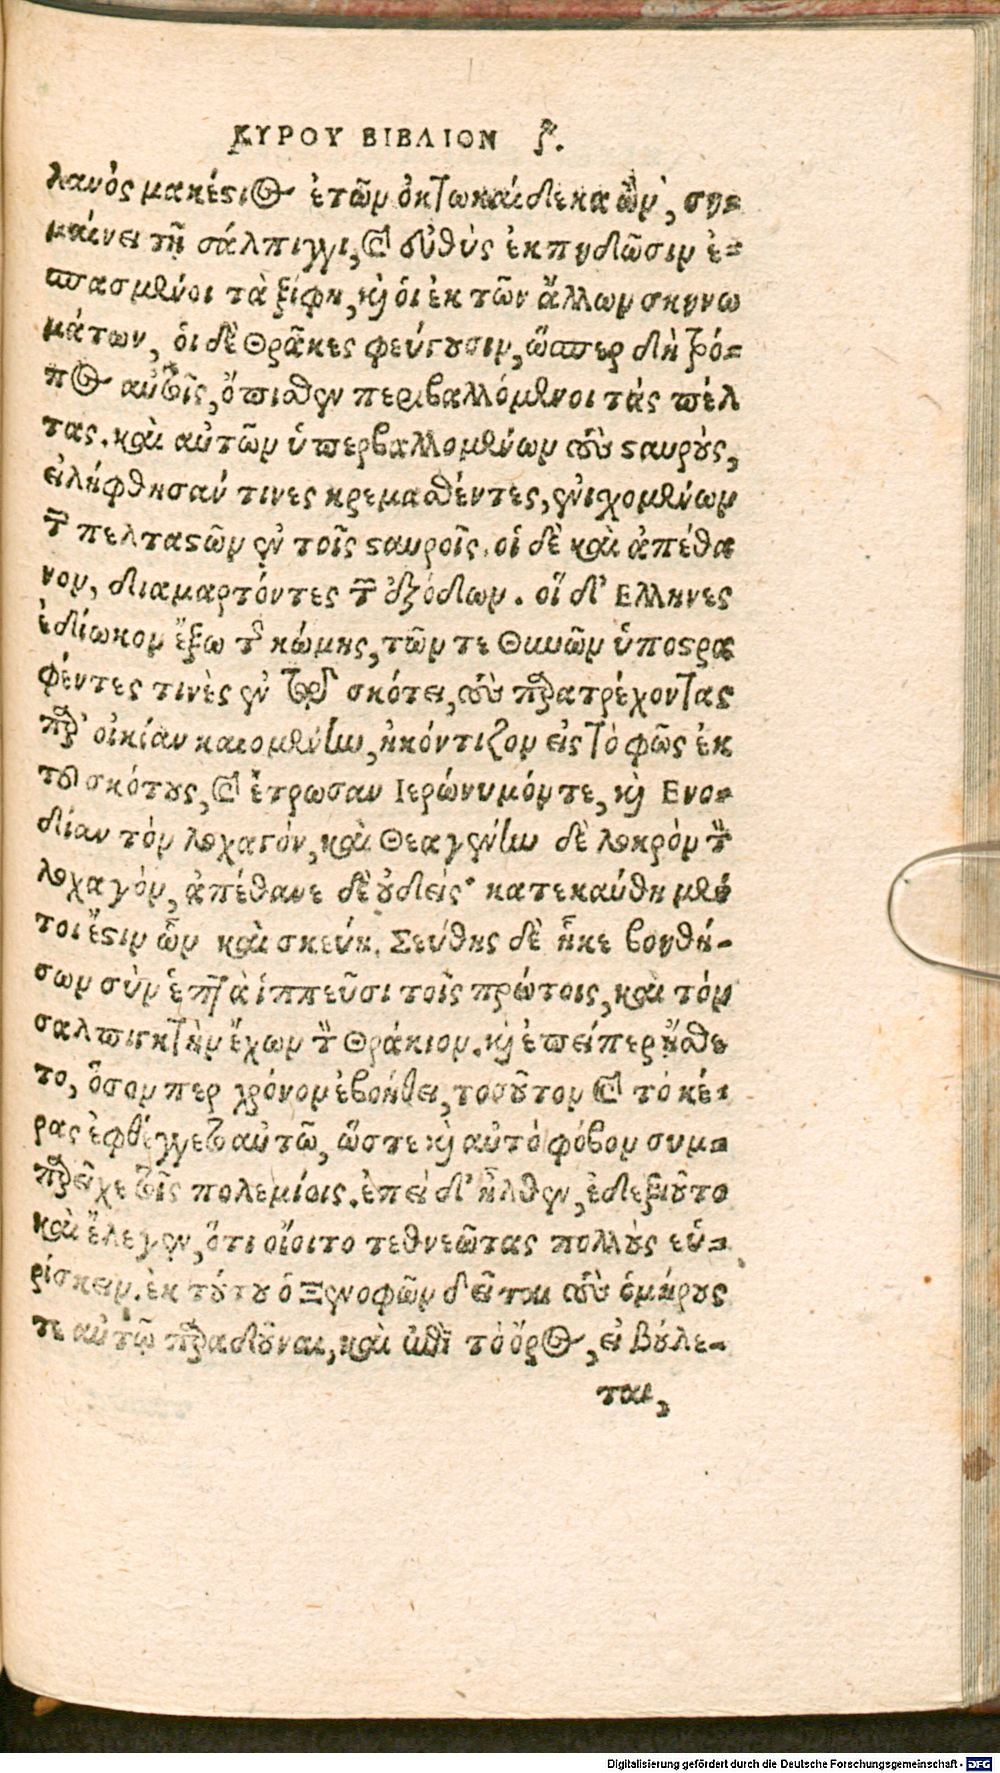 ΚΥΡΟΥ ΒΙΒΛΙΟΝ ζ.
λανὸς μακέστος ἐτῶν ὀκτωκαίδεκα ὢν, ση-
μαίνει τῇ σάλπιγγι, καὶ εὐθὺς ἐκπηδῶσιν ἐ-
σπασμένοι τὰ ξίφη, καὶ οἱ ἐκ τῶν ἄλλων σκηνω
μάτων, οἱ δὲ Θρᾷκες φεύγουσιν, ὥσπερ δὴ τρό-
πος αὐτοῖς, ὄπισθεν περιβαλλόμενοι τὰς πέλ
τας. καὶ αὐτῶν ὑπερβαλλομένων τοὺς σταυροὺς,
εἰλήφθησάν τινες κρεμασθέντες, ἐνιχομένων
τῶν πελταστῶν ἐν τοῖς σταυροῖς. οἱ δὲ καὶ ἀπέθα
νον, διαμαρτόντες τῶν ἐξόδων. οἵ δ' Ελληνες
ἐδίωκον ἔξω τῆς κώμης, τῶν τε Θυνῶν ὑποστρα
φέντες τινὲς ἐν τῷ σκότει, τοὺς παρατρέχοντας
παρ' οἰκίαν καιομένην, ἠκόντιζον εἰς τὸ φῶς ἐκ
τοῦ σκότους, καὶ ἔτρωσαν Ιερώνυμόν τε, καὶ Ενο-
δίαν τὸν λοχαγόν, καὶ Θεαγένην δὲ λοκρὸν τὸν
λοχαγὸν, ἀπέθανε δὲ οὐδείς· κατεκαύθη μέν
τοι ἔστιν ὧν καὶ σκεύη. Σεύθης δὲ ἧκε βοηθή-
σων σὺν ἑπτὰ ἱππεῦσι τοῖς πρώτοις, καὶ τὸν
σαλπιγκτὴν ἔχων τὸν Θράκιον. καὶ ἐπείπερ ᾔσθε
το, ὅσον περ χρόνον ἐβοήθει, τοσοῦτον καὶ τὸ κέ-
ρας ἐφθέγγετο αὐτῷ, ὥστε καὶ αὐτὸ φόβον συμ-
παρεῖχε τοῖς πολεμίοις. ἐπεὶ δ' ἦλθεν, ἐδεξιοῦτο
καὶ ἔλεγεν, ὅτι οἴοιτο τεθνεῶτας πολλοὺς εὑ-
ρίσκειν. ἐκ τούτου ὁ Ξενοφῶν δεῖται τοὺς ὁμήρους
τε αὐτῷ παραδοῦναι, καὶ ἐπὶ τὸ ὄρος, εἰ βούλε-
ται,
Digitalisierung gefördert durch die Deutsche Forschungsgemeinschaft - DFG